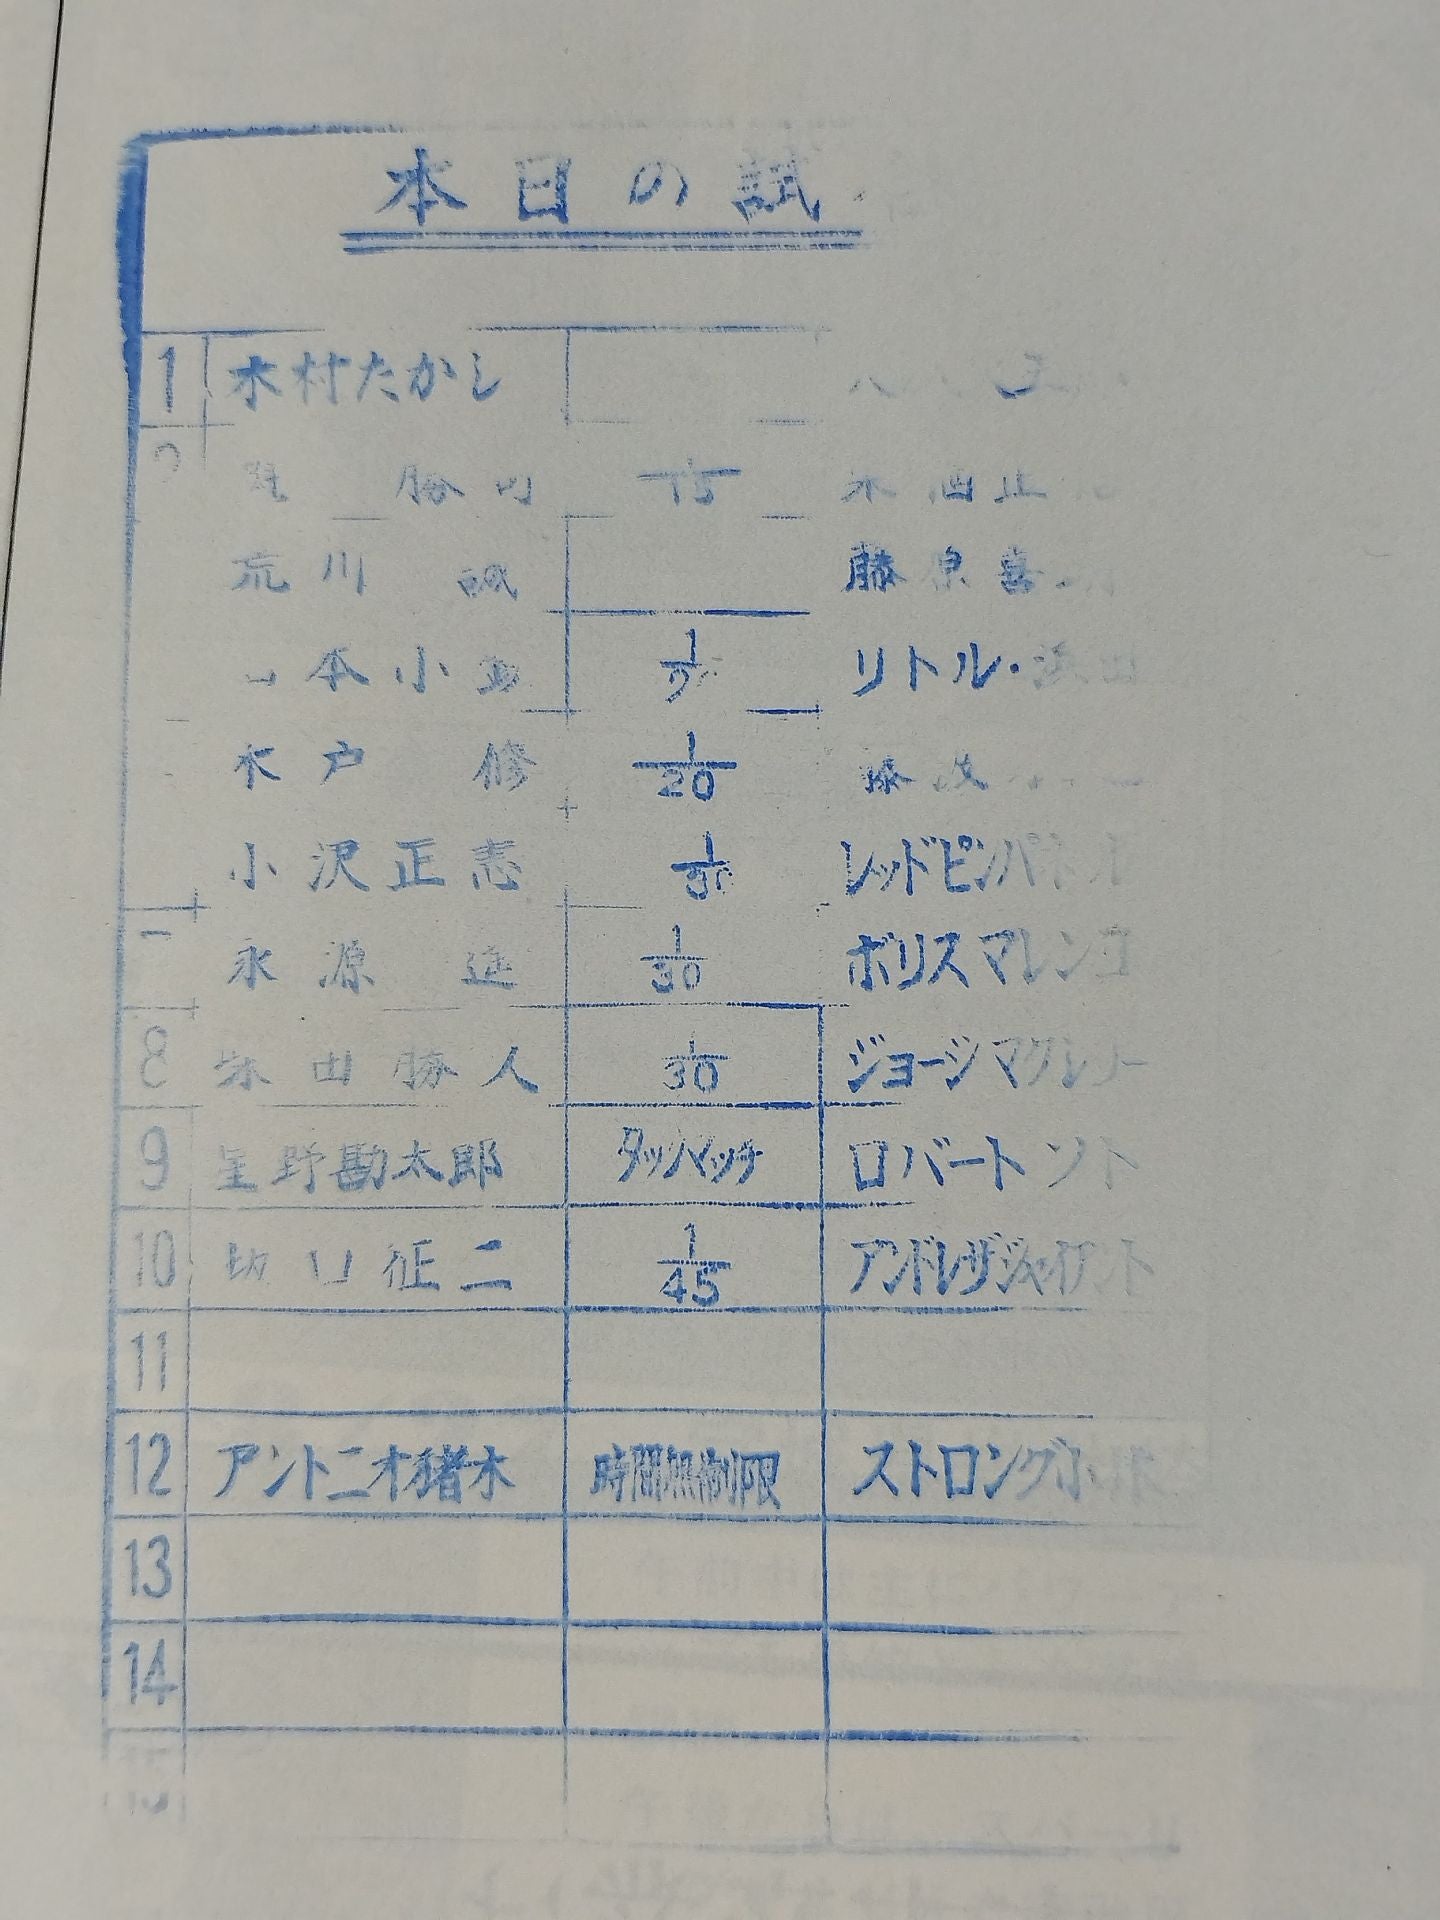 本日の試
1 木村たかし
勝 1/15
荒川 誠 藤原喜
本小 リトル・浜田
木戸 修 1/20 藤波
小沢正志 レッドピンパネル
永源 遥 1/30 ボリスマレンコ
8 柴田勝人 1/30 ジョージマクレリー
9 星野勘太郎 タッグマッチ ロバート ソト
10 坂口征二 1/45 アンドレザジャイアント
11
12 アントニオ猪木 時間無制限 ストロング小林
13
14
15